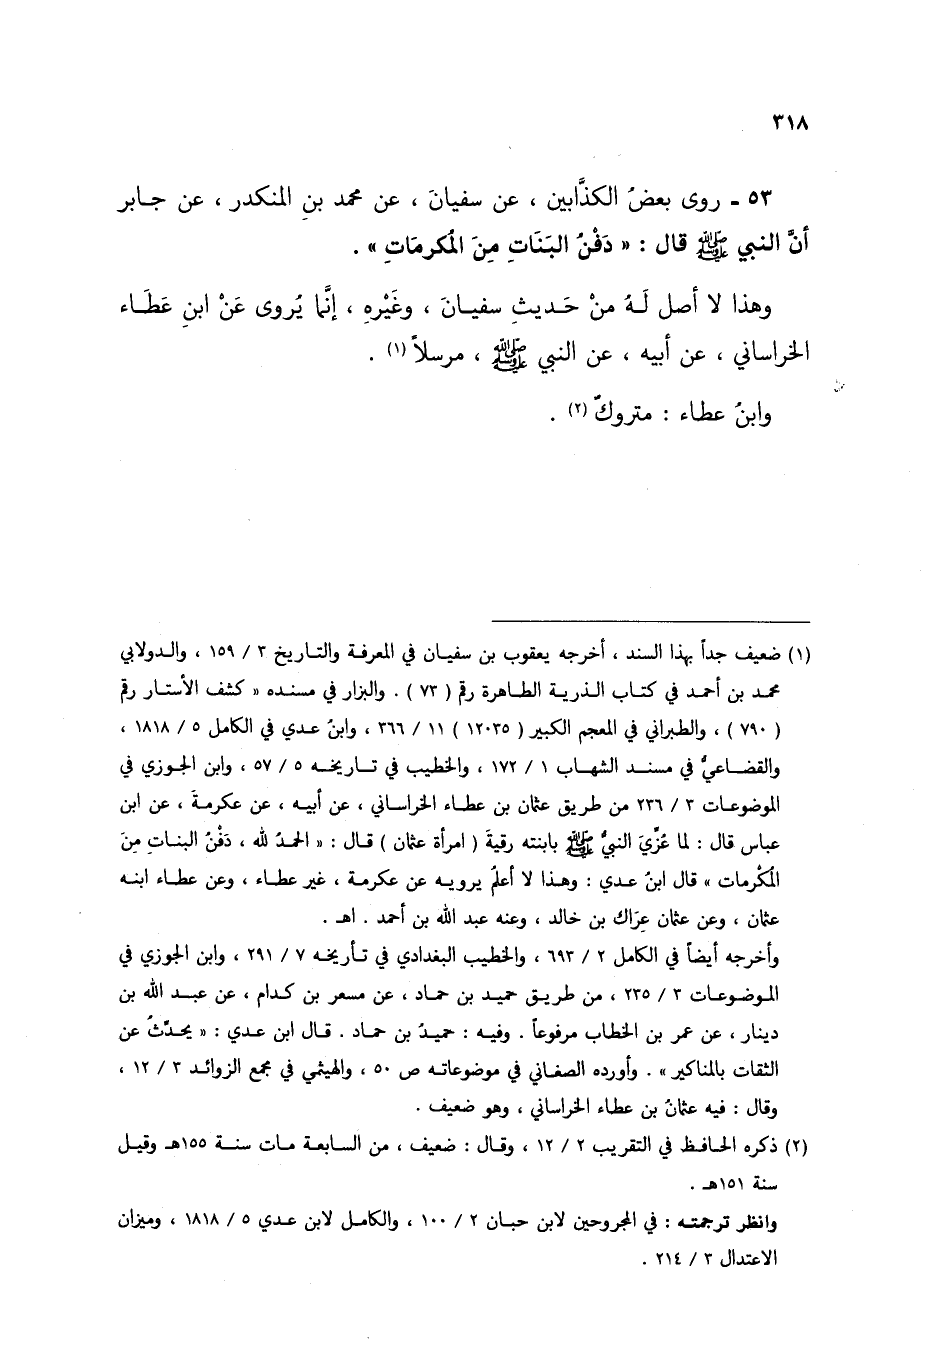 ٣١٨
٥٣ ـ روى بعضُ الكذَّابين ، عن سفيانَ ، عن محمد بنِ المنكدر ، عن جابر
أنَّ النبي ﷺ قال : « دَفْنُ البَنَاتِ مِنَ المُكرمَاتِ » .
وهذا لا أصل لَهُ منْ حَديثِ سفيـانَ ، وغَيْرِهِ ، إنَّما يُروى عَنْ ابنِ عَطَـاء
الخراساني ، عن أبيه ، عن النبي ﷺ ، مرسلاً (١) .
وابنُ عطاء : متروكٌ (٢) .
(١) ضعيف جداً بهذا السند ، أخرجه يعقوب بن سفيـان في المعرفـة والتـاريخ ٣ / ١٥٩ ، والـدولابي
محمـد بن أحمـد في كتـاب الـذريـة الطـاهرة رقم ( ٧٣ ) . والبزار في مسنـده « كشف الأستـار رقم
( ٧٩٠ ) ، والطبراني في المعجم الكبير ( ١٢٠٣٥ ) ١١ / ٣٦٦ ، وابنُ عـدي في الكامل ٥ / ١٨١٨ ،
والقضـاعيُّ في مسنـد الشهـاب ١ / ١٧٢ ، والخطيب في تـاريخـه ٥ / ٥٧ ، وابن الجـوزي في
الموضوعـات ٣ / ٢٣٦ من طريق عثمان بن عطـاء الخراسـاني ، عن أبيـه ، عن عكرمـةَ ، عن ابن
عباس قال : لما عُزِّيَ النبيُّ ﷺ بابنته رقيةَ ( امرأة عثمان ) قـال : « الحمـدُ لله ، دَفْنُ البنـاتِ مِنَ
المُكْرمات » قال ابنُ عـدي : وهـذا لا أعلمُ يرويـه عن عكرمـة ، غير عطـاء ، وعن عطـاء ابنـه
عثمان ، وعن عثمان عِرَاك بن خالد ، وعنه عبد الله بن أحمد . اهـ .
وأخرجه أيضاً في الكامل ٢ / ٦٩٣ ، والخطيب البغدادي في تـأريخـه ٧ / ٢٩١ ، وابن الجوزي في
المـوضـوعـات ٣ / ٢٣٥ ، من طريـق حميـد بن حمـاد ، عن مسعر بن كـدام ، عن عبـد الله بن
دينار ، عن عمر بن الخطاب مرفوعاً . وفيـه : حميـدُ بن حمـاد . قـال ابن عـدي : « يحـدّثُ عن
الثقات بالمناكير » . وأورده الصغـاني في موضوعاتـه ص ٥٠ ، والهيثمي في مجمع الزوائـد ٣ / ١٢ ،
وقال : فيه عثمانُ بن عطاء الخراساني ، وهو ضعيف .
(٢) ذكره الحـافـظ في التقريب ٢ / ١٢ ، وقـال : ضعيف ، من السـابعـة مـات سنـة ١٥٥هـ وقيـل
سنة ١٥١هـ .
وانظر ترجمتـه : في المجروحين لابن حبـان ٢ / ١٠٠ ، والكامـل لابن عـدي ٥ / ١٨١٨ ، وميزان
الاعتدال ٣ / ٢١٤ .